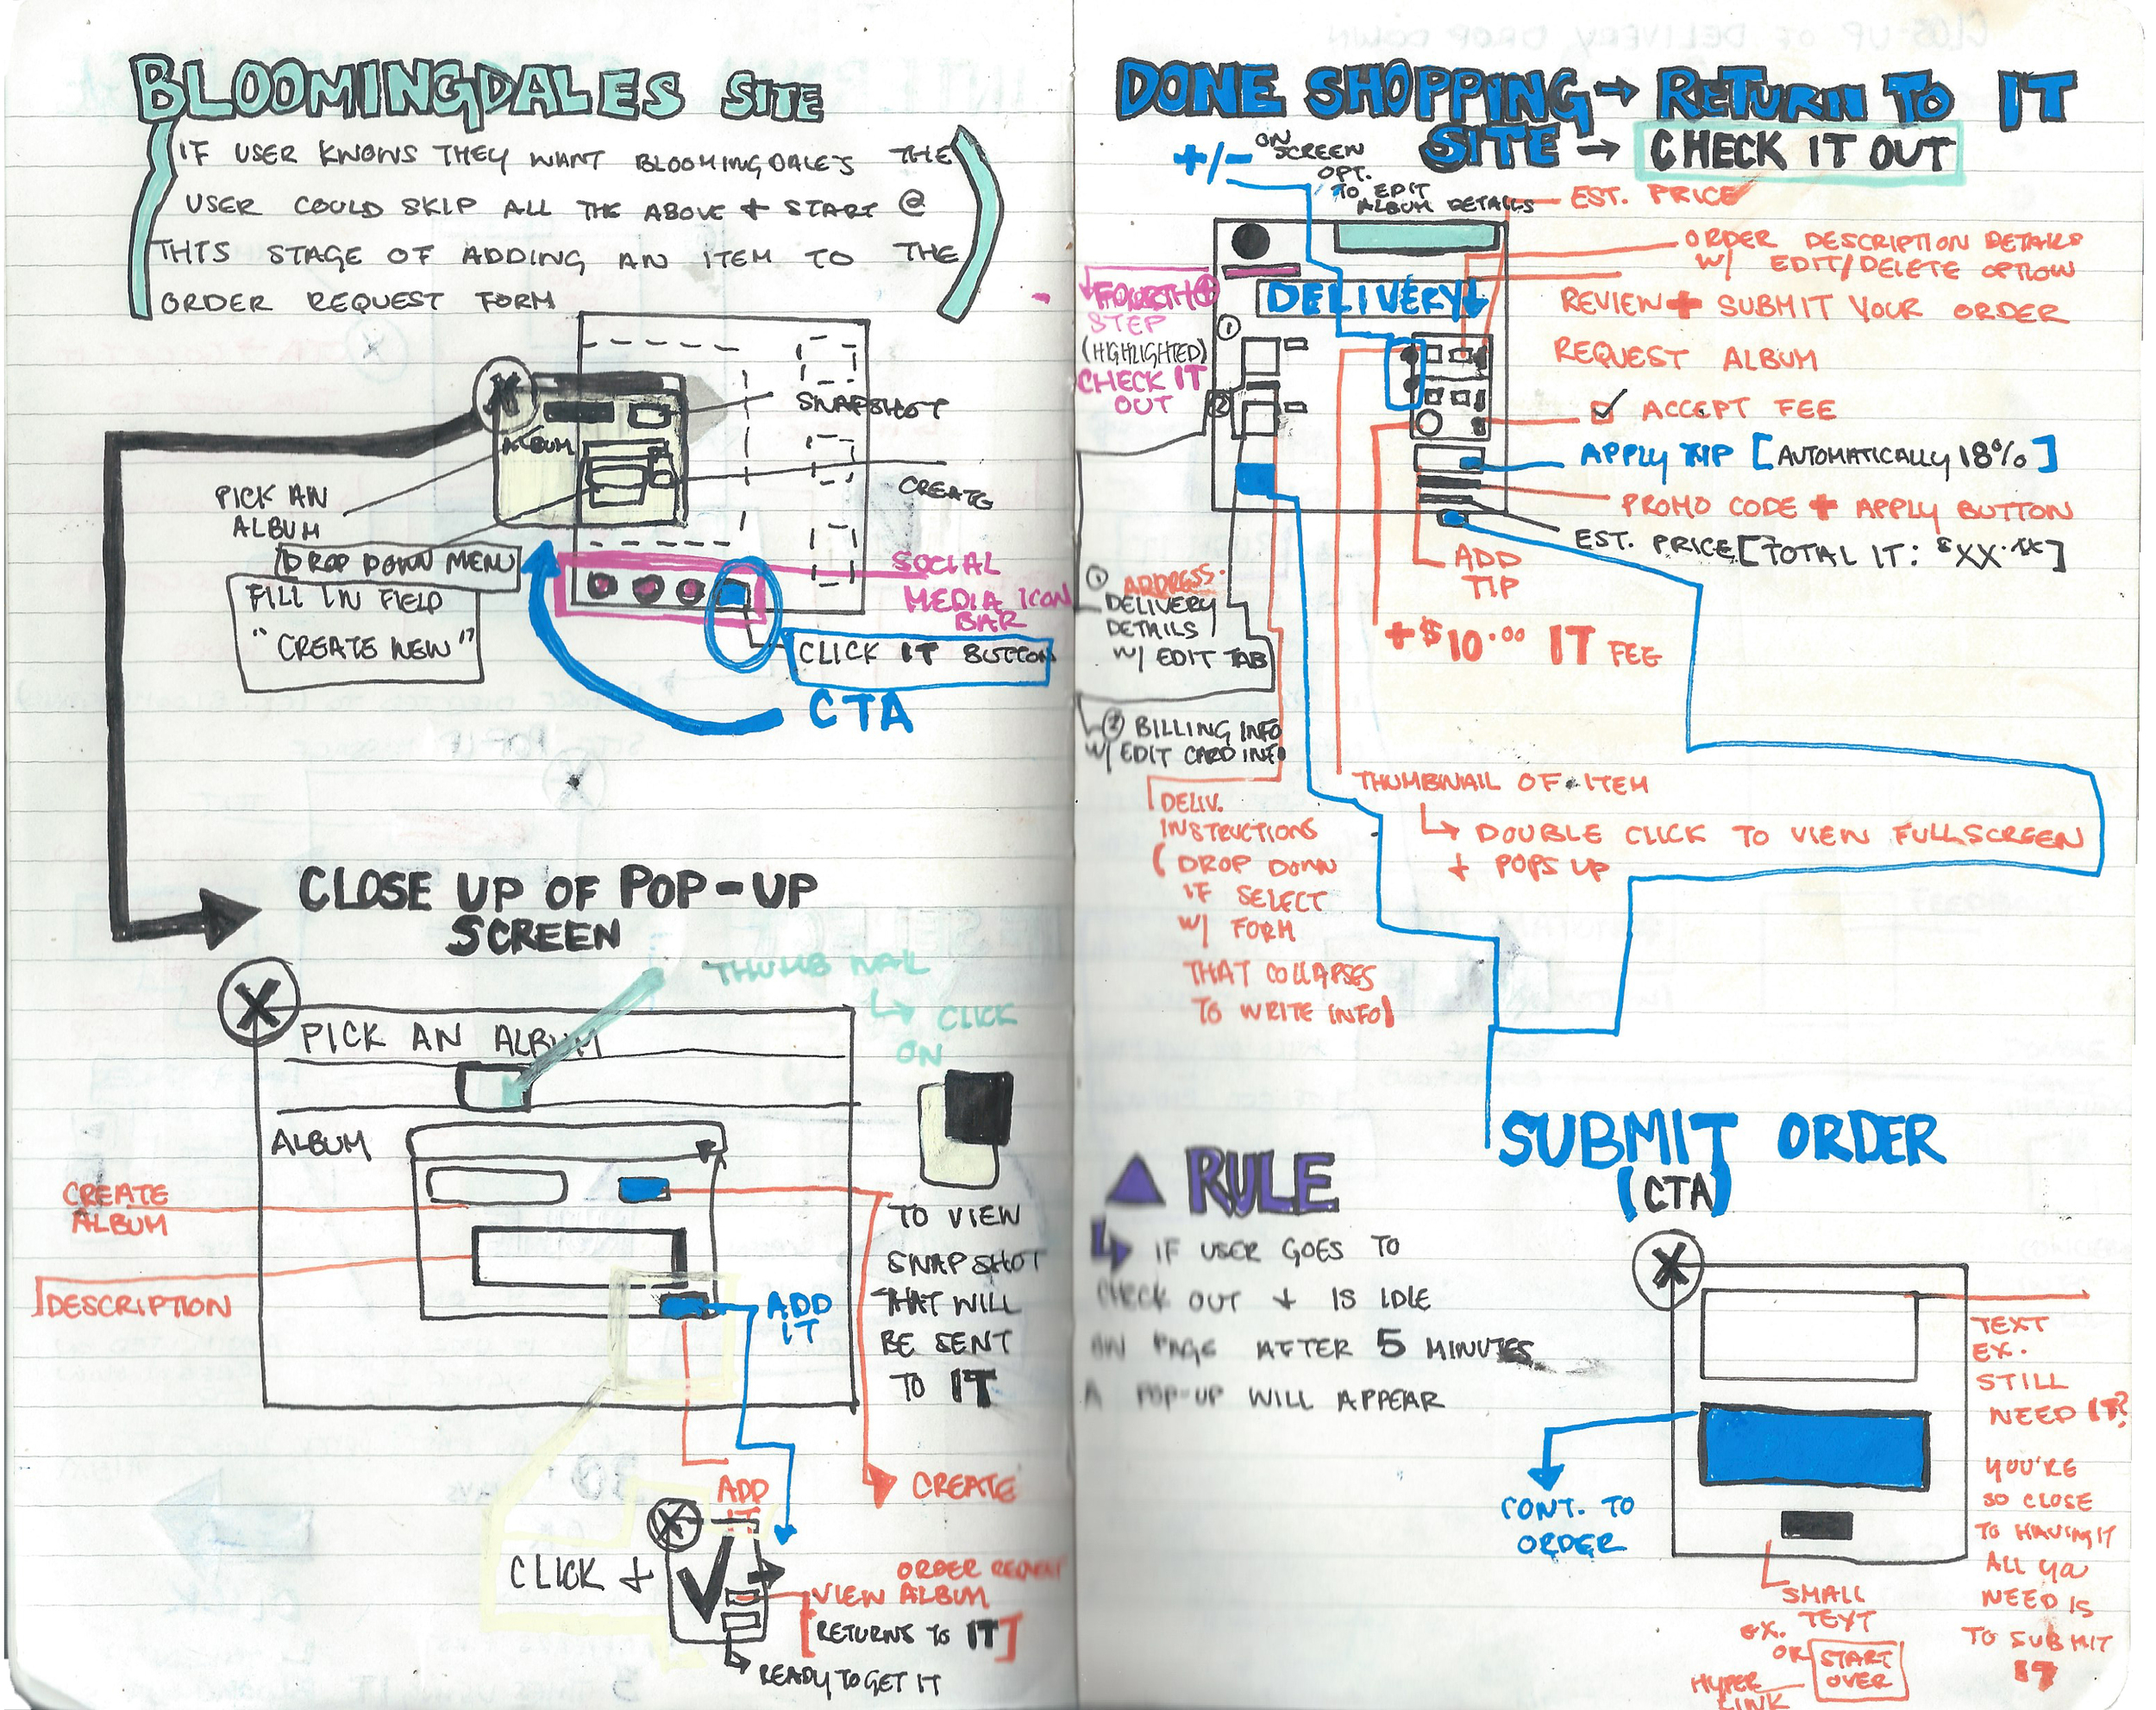 BLOOMINGDALES SITE
(IF USER KNOWS THEY WANT BLOOMINGDALE'S THE
USER COULD SKIP ALL THE ABOVE + START @
THIS STAGE OF ADDING AN ITEM TO THE
ORDER REQUEST FORM)
X
SNAPSHOT
ALBUM
PICK AN
ALBUM
CREATE
DROP DOWN MENU
FILL IN FIELD
"CREATE NEW"
SOCIAL
MEDIA ICON
BAR
CLICK IT BUTTON
CTA
CLOSE UP OF POP-UP
SCREEN
THUMB NAIL
↳ CLICK
ON
X
PICK AN ALBUM
ALBUM
CREATE
ALBUM
DESCRIPTION
ADD
IT
TO VIEW
SNAPSHOT
THAT WILL
BE SENT
TO IT
CREATE
ADD
IT
X
CLICK +
ORDER REQUEST
VIEW ALBUM
[RETURNS TO IT]
↳ READY TO GET IT
DONE SHOPPING → RETURN TO IT
SITE → CHECK IT OUT
+/- ON
SCREEN
OPT.
TO EDIT
ALBUM DETAILS
EST. PRICE
ORDER DESCRIPTION DETAILS
W/ EDIT/DELETE OPTION
REVIEW + SUBMIT YOUR ORDER
REQUEST ALBUM
☑ ACCEPT FEE
APPLY TIP [AUTOMATICALLY 18%]
PROMO CODE + APPLY BUTTON
EST. PRICE [TOTAL IT: $XX.XX]
DELIVERY↓
FOURTH 4
STEP
(HIGHLIGHTED)
CHECK IT
OUT
1
2
ADD
TIP
+$10.00 IT FEE
① ADDRESS.
DELIVERY
DETAILS
W/ EDIT TAB
② BILLING INFO
W/ EDIT CARD INFO
DELIV.
INSTRUCTIONS
(DROP DOWN
IF SELECT
W/ FORM
THAT COLLAPSES
TO WRITE INFO)
THUMBNAIL OF ITEM
↳ DOUBLE CLICK TO VIEW FULLSCREEN
+ POPS UP
SUBMIT ORDER
(CTA)
▲ RULE
↳ IF USER GOES TO
CHECK OUT + IS IDLE
ON PAGE AFTER 5 MINUTES
A POP-UP WILL APPEAR
X
TEXT
EX.
STILL
NEED IT?
YOU'RE
SO CLOSE
TO HAVING IT
ALL YA
NEED IS
TO SUBMIT
IT
CONT. TO
ORDER
SMALL
TEXT
EX.
OR START
OVER
HYPER
LINK